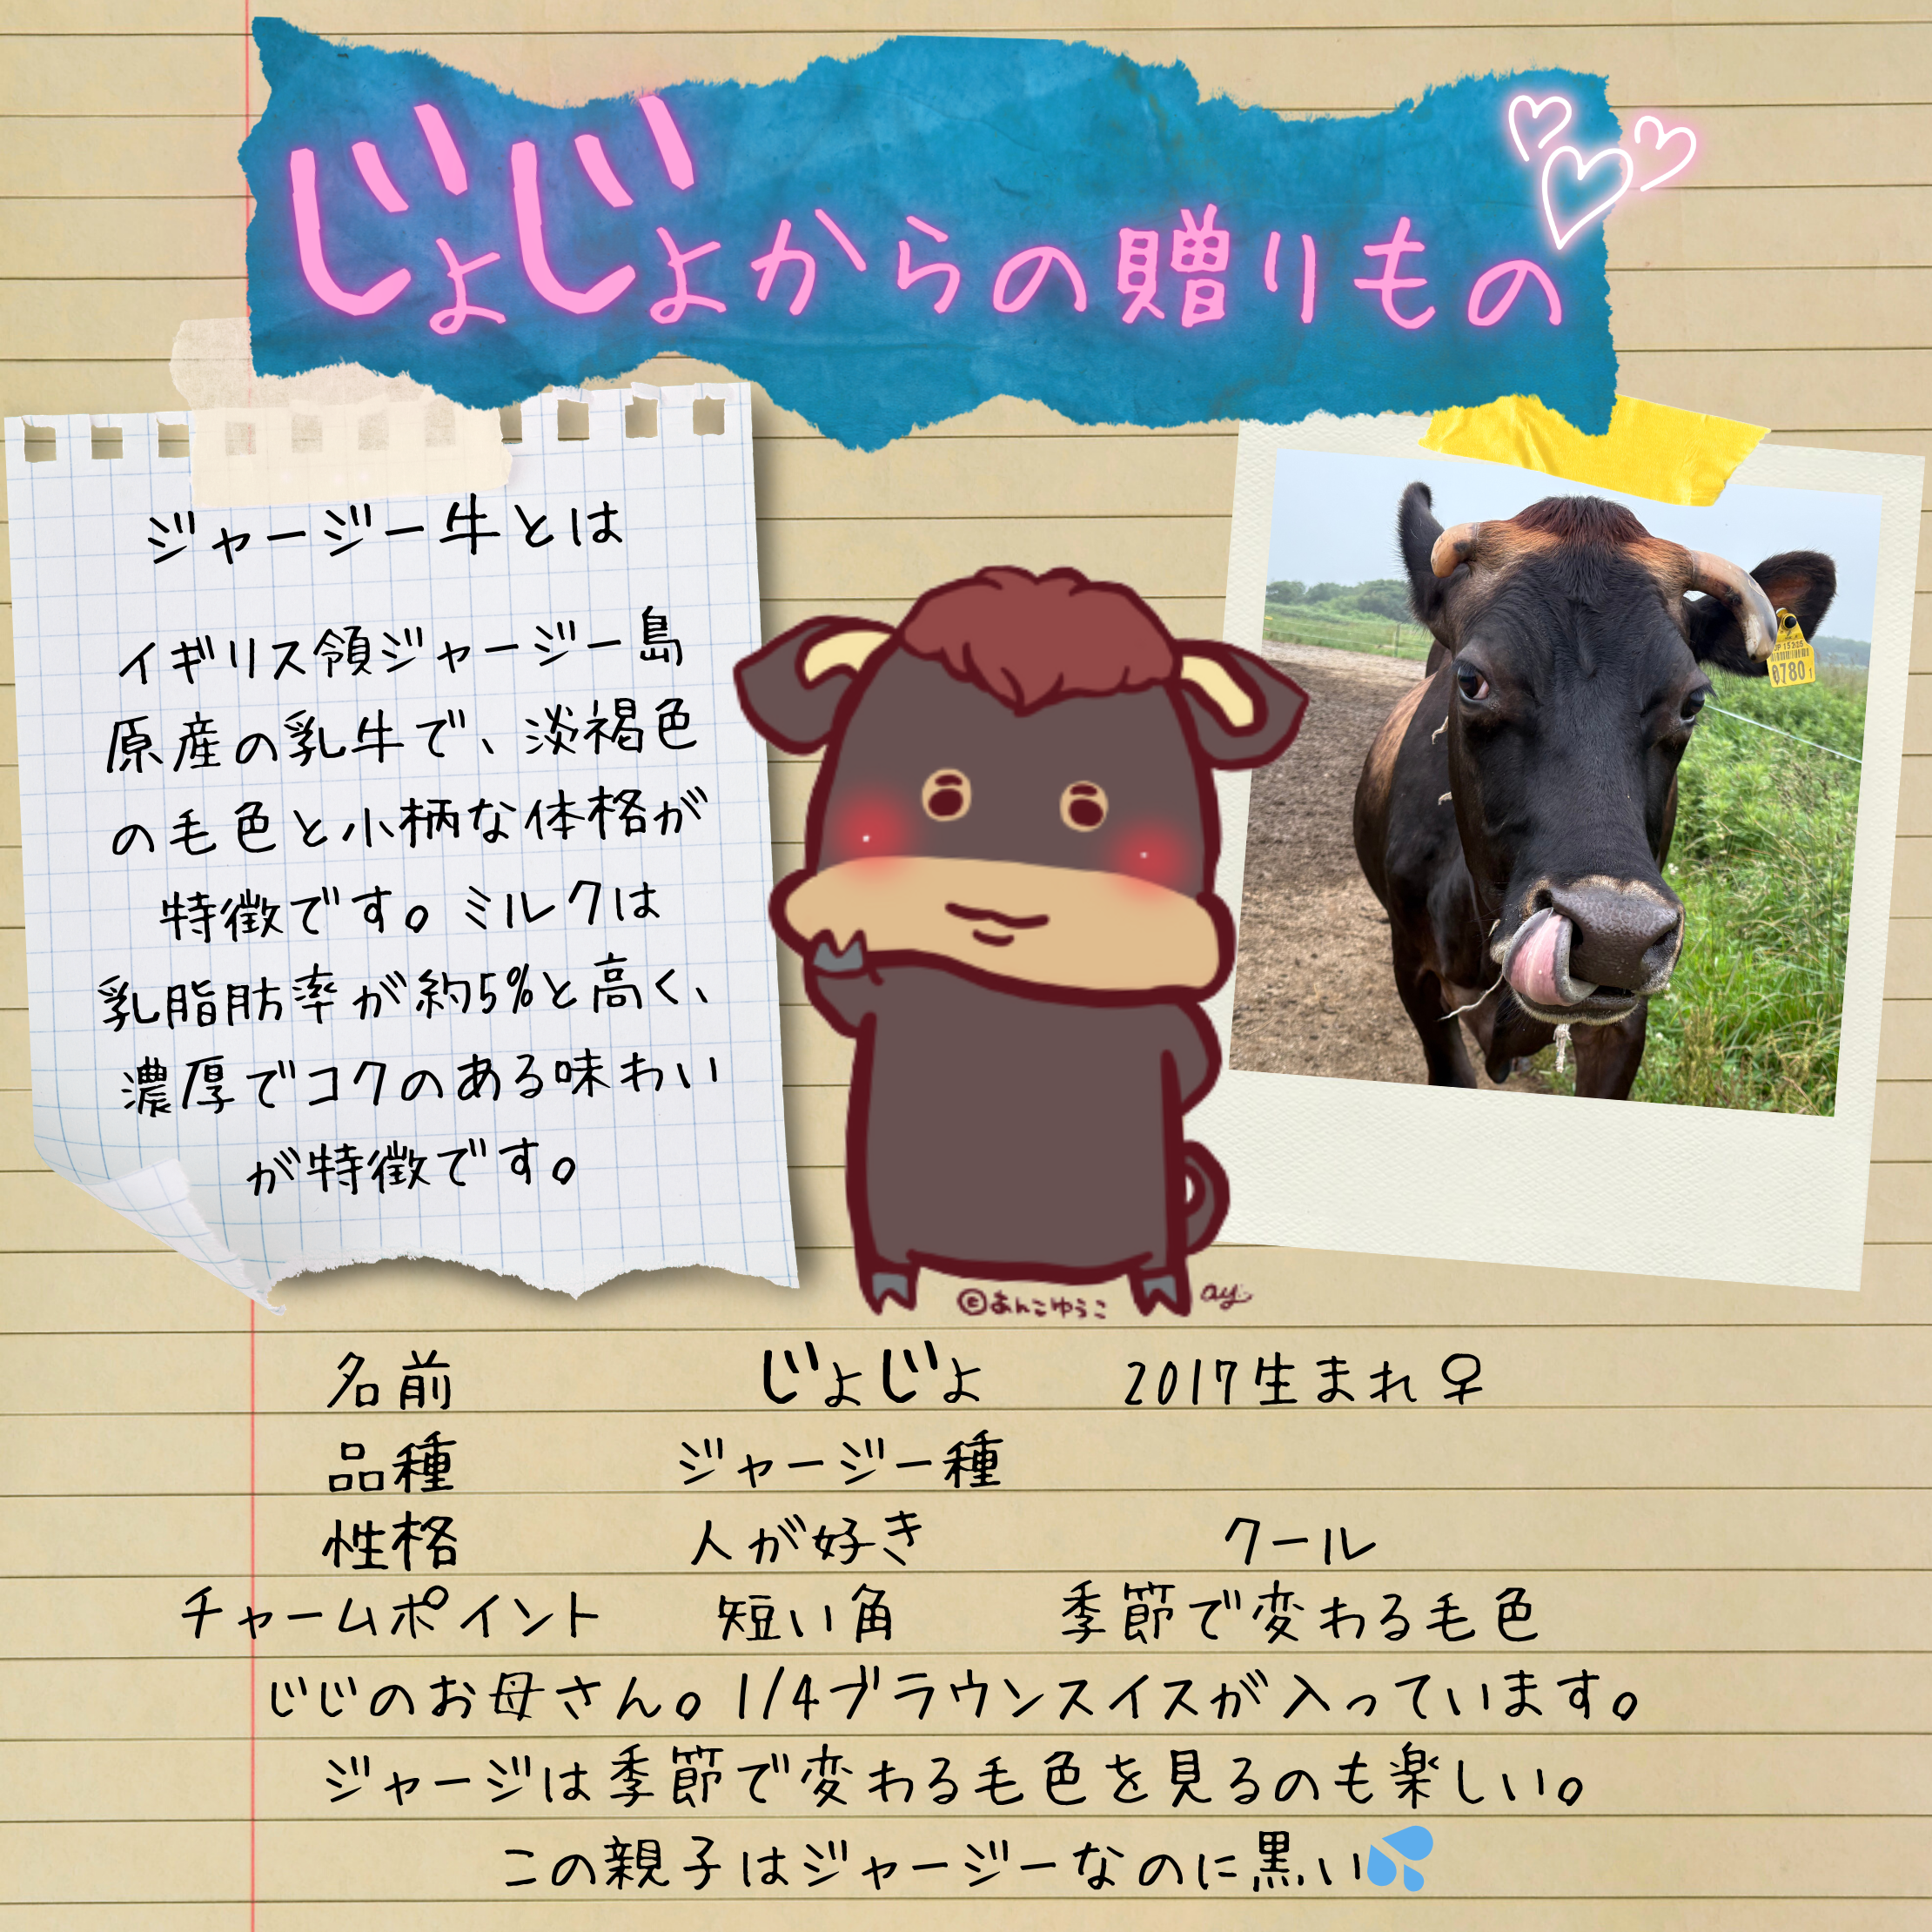 じょじょからの贈りもの
ジャージー牛とは
イギリス領ジャージー島
原産の乳牛で、淡褐色
の毛色と小柄な体格が
特徴です。ミルクは
乳脂肪率が約5%と高く、
濃厚でコクのある味わい
が特徴です。
0780
©あんこゆうこ ay
名前 じょじょ 2017生まれ♀
品種 ジャージー種
性格 人が好き クール
チャームポイント 短い角 季節で変わる毛色
じじのお母さん。1/4ブラウンスイスが入っています。
ジャージは季節で変わる毛色を見るのも楽しい。
この親子はジャージーなのに黒い💦